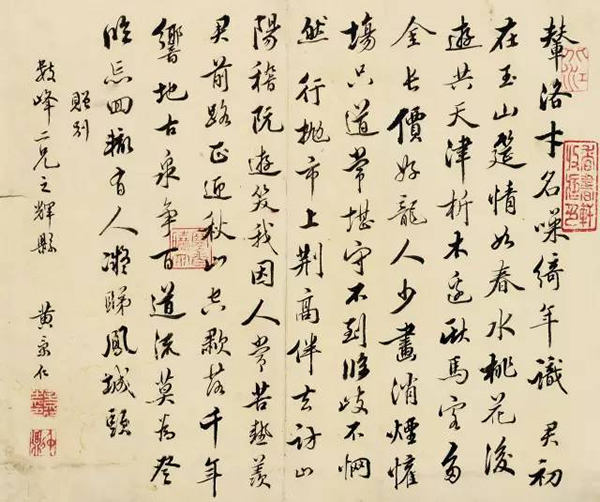 輦洛才名噪綺年識 君初
在玉山筵情如春水桃花後
遊共天津析木邊馬客多
金長價好龍人少畫消煙懽
場只道常堪守不到臨歧不惘
然 行拋市上荆高伴去訪山
陽嵇阮遊笑我因人常苦熱羨
君前路正迎秋山空歌落千年
響地古泉爭百道流莫為登
臨忘回轍有人凝睇鳳城頭
贈別
敦峰二兄之輝縣 黃景仁